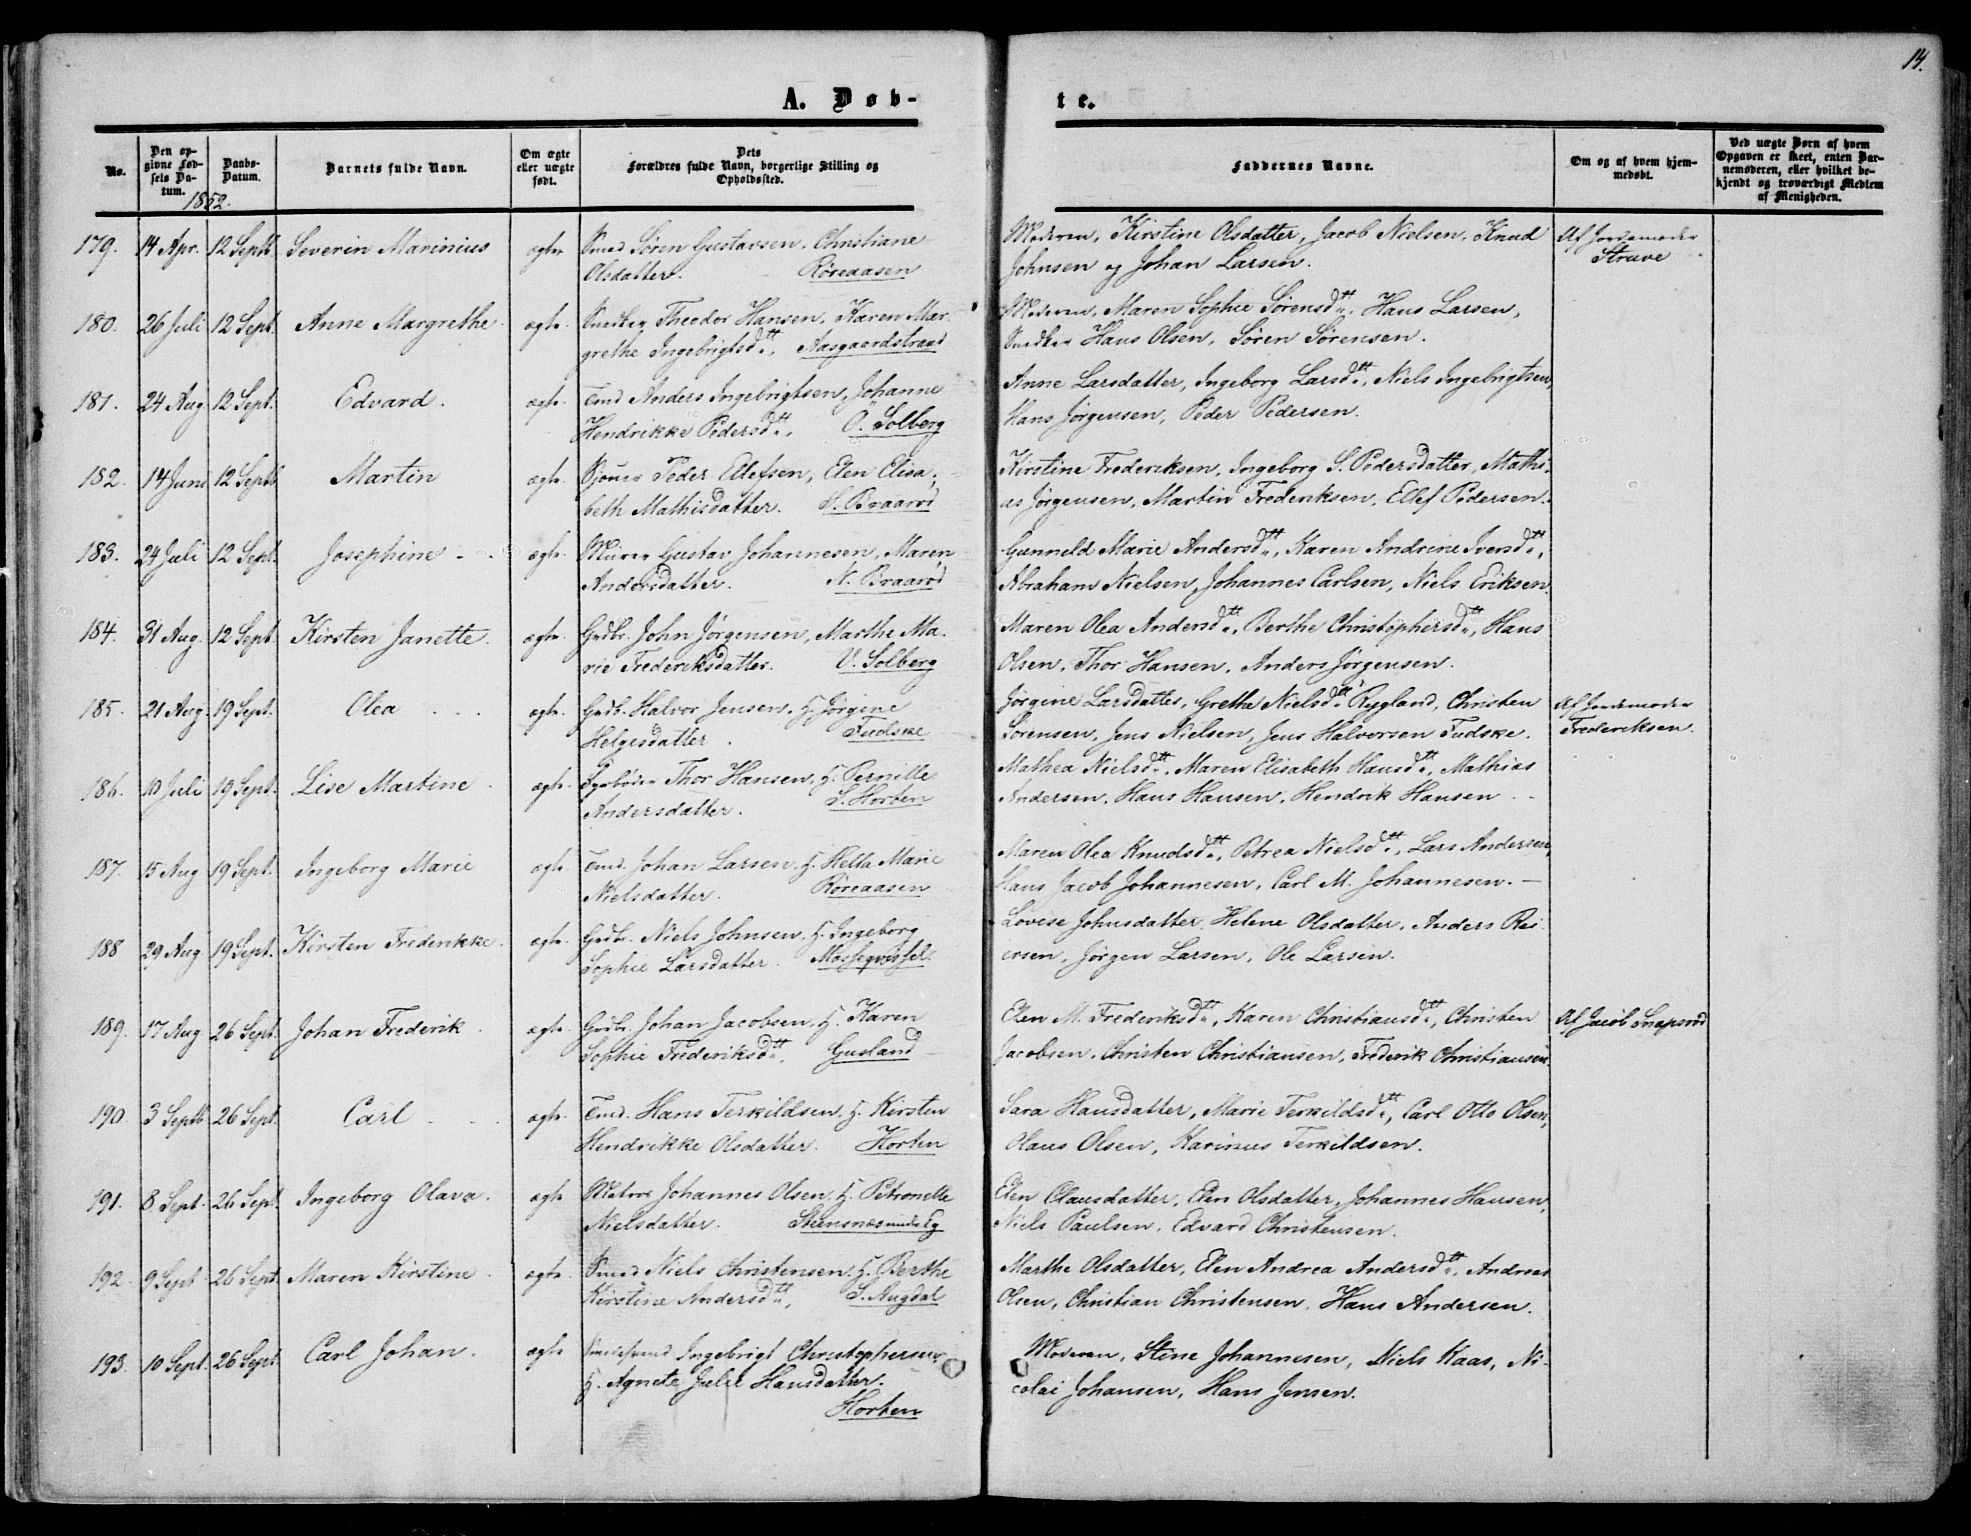 14.
A. Døb- te.
No. | Den opgivne Fødsels Datum. | Daabs-Datum. | Barnets fulde Navn. | Om ægte eller uægte født. | Dets Forældres fulde Navn, borgerlige Stilling og Opholdssted. | Faddernes Navne. | Om og af hvem hjemmedøbt. | Ved uægte Børn af hvem Opgaven er skeet, enten Barnemoderen, eller hvilket bekjendt og troværdigt Medlem af Menigheden.
1852.
179. 14 Apr. 12 Septb Severin Marinius ægte Smed Søren Gustavsen, Christiane Moderen, Kirstine Olsdatter, Jacob Nielsen, Knud Af Jordemoder
Olsdatter. Røreaasen Johnsen og Johan Larsen. Struve
180. 26 Juli 12 Sept. Anne Margrethe ægte. Snedker Theodor Hansen, Karen Mar- Moderen, Maren Sophie Sørensdtt., Hans Larsen,
grethe Ingebrigtsdtt., Aasgaardstrand Snedker Hans Olsen, Søren Sørensen.
181. 24 Aug 12 Sept. Edvard. ægte. Tmd Anders Ingebrigtsen, Johanne Anne Larsdatter, Ingeborg Larsdtt., Niels Ingebrigtsen,
Hendrikke Pedersdtt., Ø. Solberg Hans Jørgensen, Peder Pedersen.
182. 14 Juni 12 Septb Martin ægte. Peder Ellefsen, Elen Elisa- Kirstine Frederiksen, Ingeborg S. Pedersdatter, Mathi-
beth Mathisdatter. S. Braarød as Jørgensen, Martin Frederiksen, Ellef Pedersen.
183. 24 Juli 12 Sept. Josephine ægte. Murer Gustav Johannesen, Maren Gunneld Marie Andersdtt., Karen Andrine Iversdtt.,
Andersdatter. N. Braarød Abraham Nielsen, Johannes Carlsen, Niels Eriksen
184. 31 Aug. 12 Sept. Kirsten Janette. ægte. Grdbr. John Jørgensen, Marthe Ma- Maren Olea Andersdtt., Berthe Christophersdtt., Hans
rie Frederiksdatter. V. Solberg Olsen, Thor Hansen, Anders Jørgensen.
185. 21 Aug. 19 Sept. Olea ægte. Grdb. Halvor Jensen, H. Jørgine Jørgine Larsdatter, Grethe Nielsdtt. Rygland, Christen Af Jordemoder
Helgesdatter. Fudske Sørensen, Jens Nielsen, Jens Halvorsen Fudske. Frederiksen.
186. 10 Juli 19 Sept. Lise Martine ægte. Thor Hansen, H. Pernille Mathea Nielsdtt., Maren Elisabeth Hansdtt., Mathias
Andersdatter. S. Horten Andersen, Hans Hansen, Hendrik Hansen
187. 15 Aug 19 Sept. Ingeborg Marie ægte. Tmd. Johan Larsen, H. Hella Marie Maren Olea Knudsdtt., Petrea Nielsdtt., Lars Andersen,
Nielsdatter. Røreaasen Hans Jacob Johannesen, Carl M. Johannesen.
188 29 Aug 19 Sept. Kirsten Frederikke ægte. Grdbr. Niels Johnsen, H. Ingeborg Lovise Johnsdatter, Helene Olsdatter, Anders Rei-
Sophie Larsdatter. ersen, Jørgen Larsen, Ole Larsen.
189. 17 Aug 26 Sept. Johan Frederik. ægte. Grdbr. Johan Jacobsen, H. Karen Elen M. Frederiksdtt., Karen Christiansdtt., Christen Af Jacob Snapsrød
Sophie Frederiksdtt., Gusland Jacobsen, Christen Christiansen, Frederik Christiansen.
190. 3 Septb 26 Sept. Carl ægte. Tmd. Hans Terkildsen, H. Kirsten Sara Hansdatter, Marie Terkildsdtt., Carl Otto Olsen,
Hendrikke Olsdatter. Horten Olaus Olsen, Karinus Terkildsen.
191. 8 Sept. 26 Sept. Ingeborg Olava. ægte Matros Johannes Olsen, H. Petronelle Elen Clausdatter, Elen Olsdatter, Johannes Hansen,
Nielsdatter. Niels Paulsen, Edvard Christensen.
192. 9 Sept 26 Sept. Maren Kirstine. ægte. Smed Niels Christensen, H. Berthe Marthe Olsdatter, Elen Andrea Andersdtt., Andreas
Kirstine Andersdtt., S. Augdal Olsen, Christian Christensen, Hans Andersen.
193. 10 Sept. 26 Sept. Carl Johan. ægte Ingebrigt Christophersen, Moderen, Stine Johannesen, Niels Kaas, Ni-
H. Agnete Julie Hansdatter. colai Johansen, Hans Jensen.
Horten